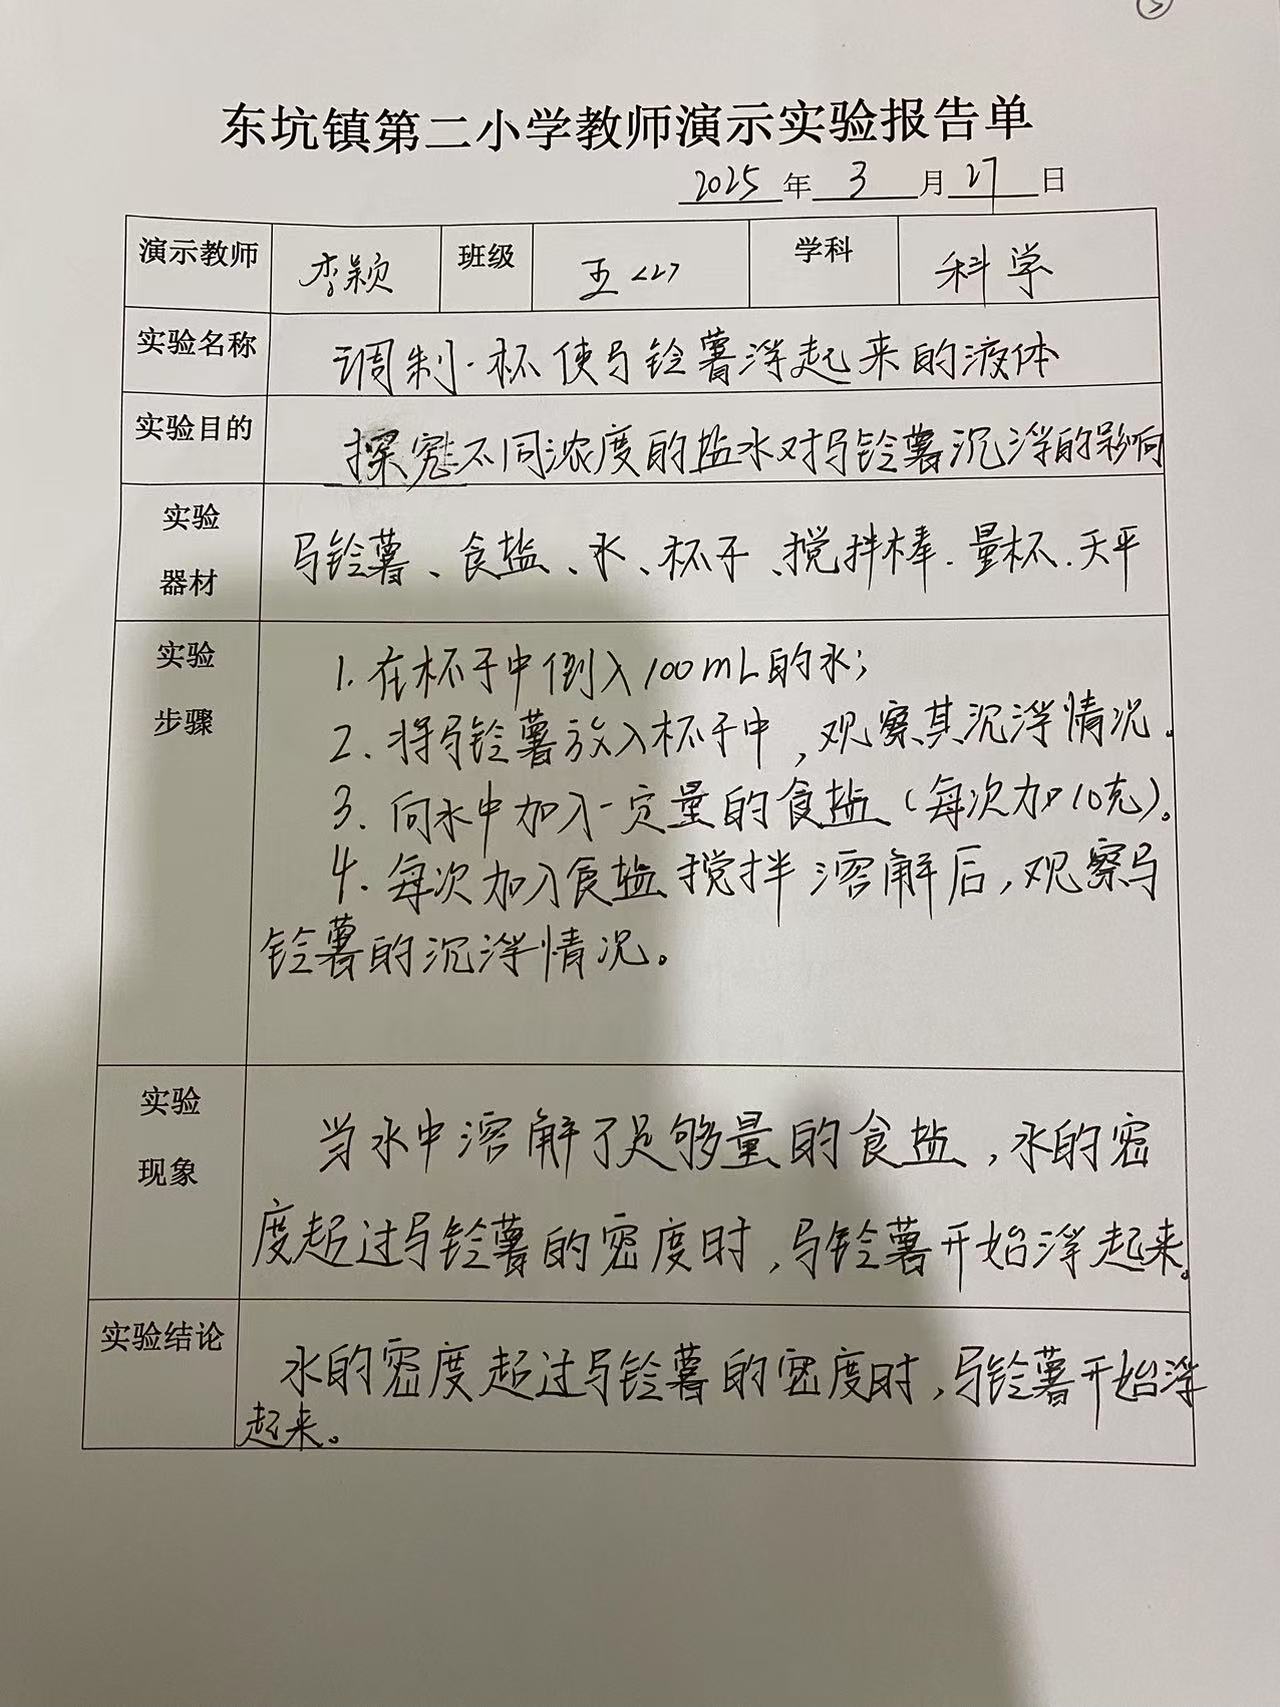 东坑镇第二小学教师演示实验报告单
2025 年 3 月 27 日
演示教师 李颖 班级 五<2> 学科 科学
实验名称 调制一杯使马铃薯浮起来的液体
实验目的 探究不同浓度的盐水对马铃薯沉浮的影响
实验
器材
马铃薯、食盐、水、杯子、搅拌棒.量杯.天平
实验
步骤
1. 在杯子中倒入100mL的水;
2. 将马铃薯放入杯子中,观察其沉浮情况。
3. 向水中加入一定量的食盐(每次加10克)。
4. 每次加入食盐搅拌溶解后,观察马
铃薯的沉浮情况。
实验
现象
当水中溶解了足够量的食盐,水的密
度超过马铃薯的密度时,马铃薯开始浮起来。
实验结论
水的密度超过马铃薯的密度时,马铃薯开始浮
起来。